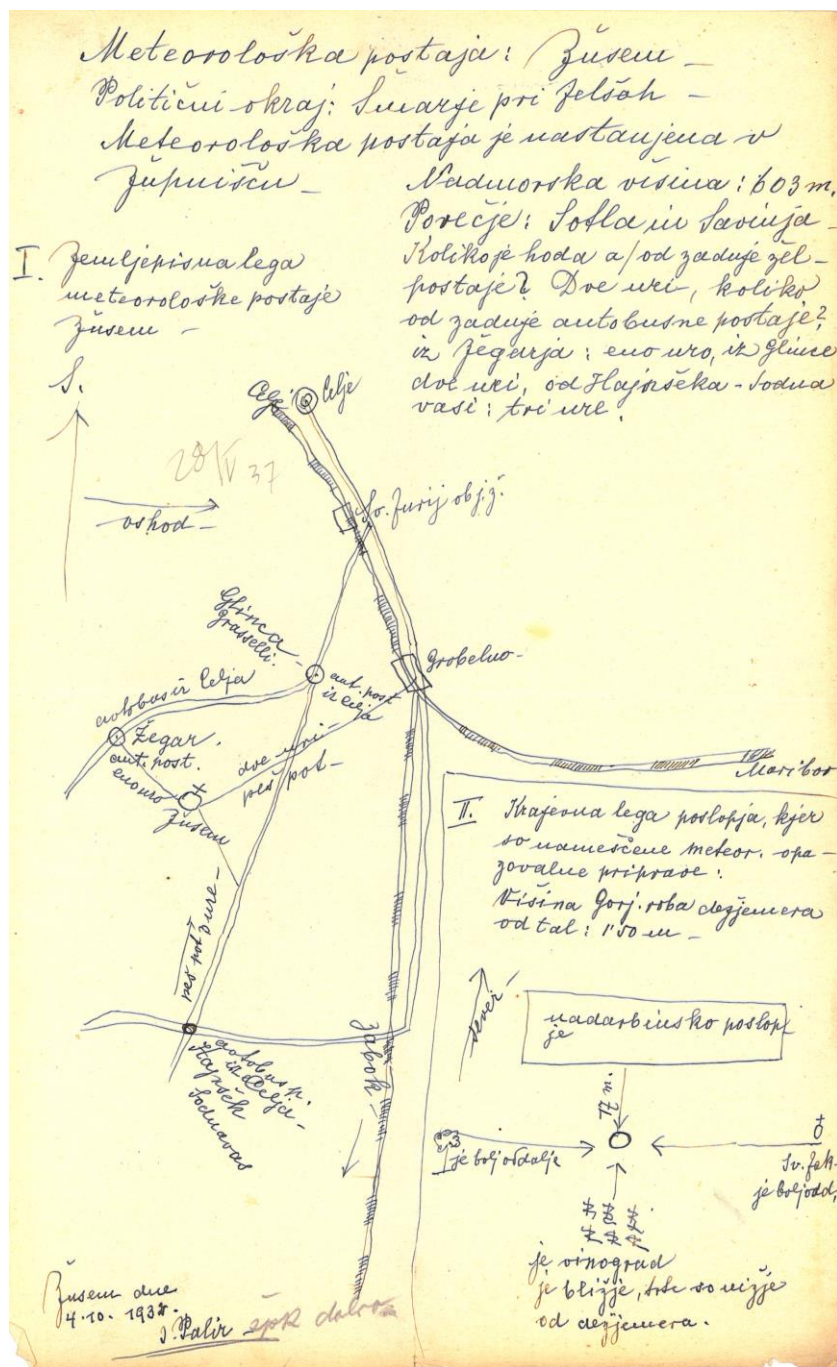 Meteorološka postaja: Žusem –
Politični okraj: Šmarje pri Jelšah –
Meteorološka postaja je nastanjena v
župnišču –
Nadmorska višina: 603 m.
Porečje: Sotla in Savinja –
Koliko je hoda a/ od zadnje žel-
postaje? Dve uri, koliko
od zadnje autobusne postaje?
iz Žegarja: eno uro, iz Glince
dve uri, od Hajnšeka - Sodna
vasi: tri ure.
I. Zemljepisna lega
meteorološke postaje
Žusem –
S.
vshod –
28/V 37
Celje
Celje
Sv. Jurij ob j. ž.
Glinca
Grasselli.
aut. post
iz Celja
Grobelno –
autobus iz Celja
Žegar.
aut. post.
eno uro
Žusem
dve uri
peš pot –
Maribor
peš pot 3 ure –
autobus p.
iz Celja –
Hajnšek
Sodnavas
Zabok –
II. Krajevna lega poslopja, kjer
so nameščene meteor. opa-
zovalne priprave:
Višina Gorj. roba dežjemera
od tal: 1'50 m –
sever –
nadarbinsko poslop-
je
17 m.
je bolj oddalje
Sv. Jak.
je bolj odd.
je vinograd
je bližje, trte so nižje
od dežjemera.
Žusem dne
4.10. 193
J. Palir